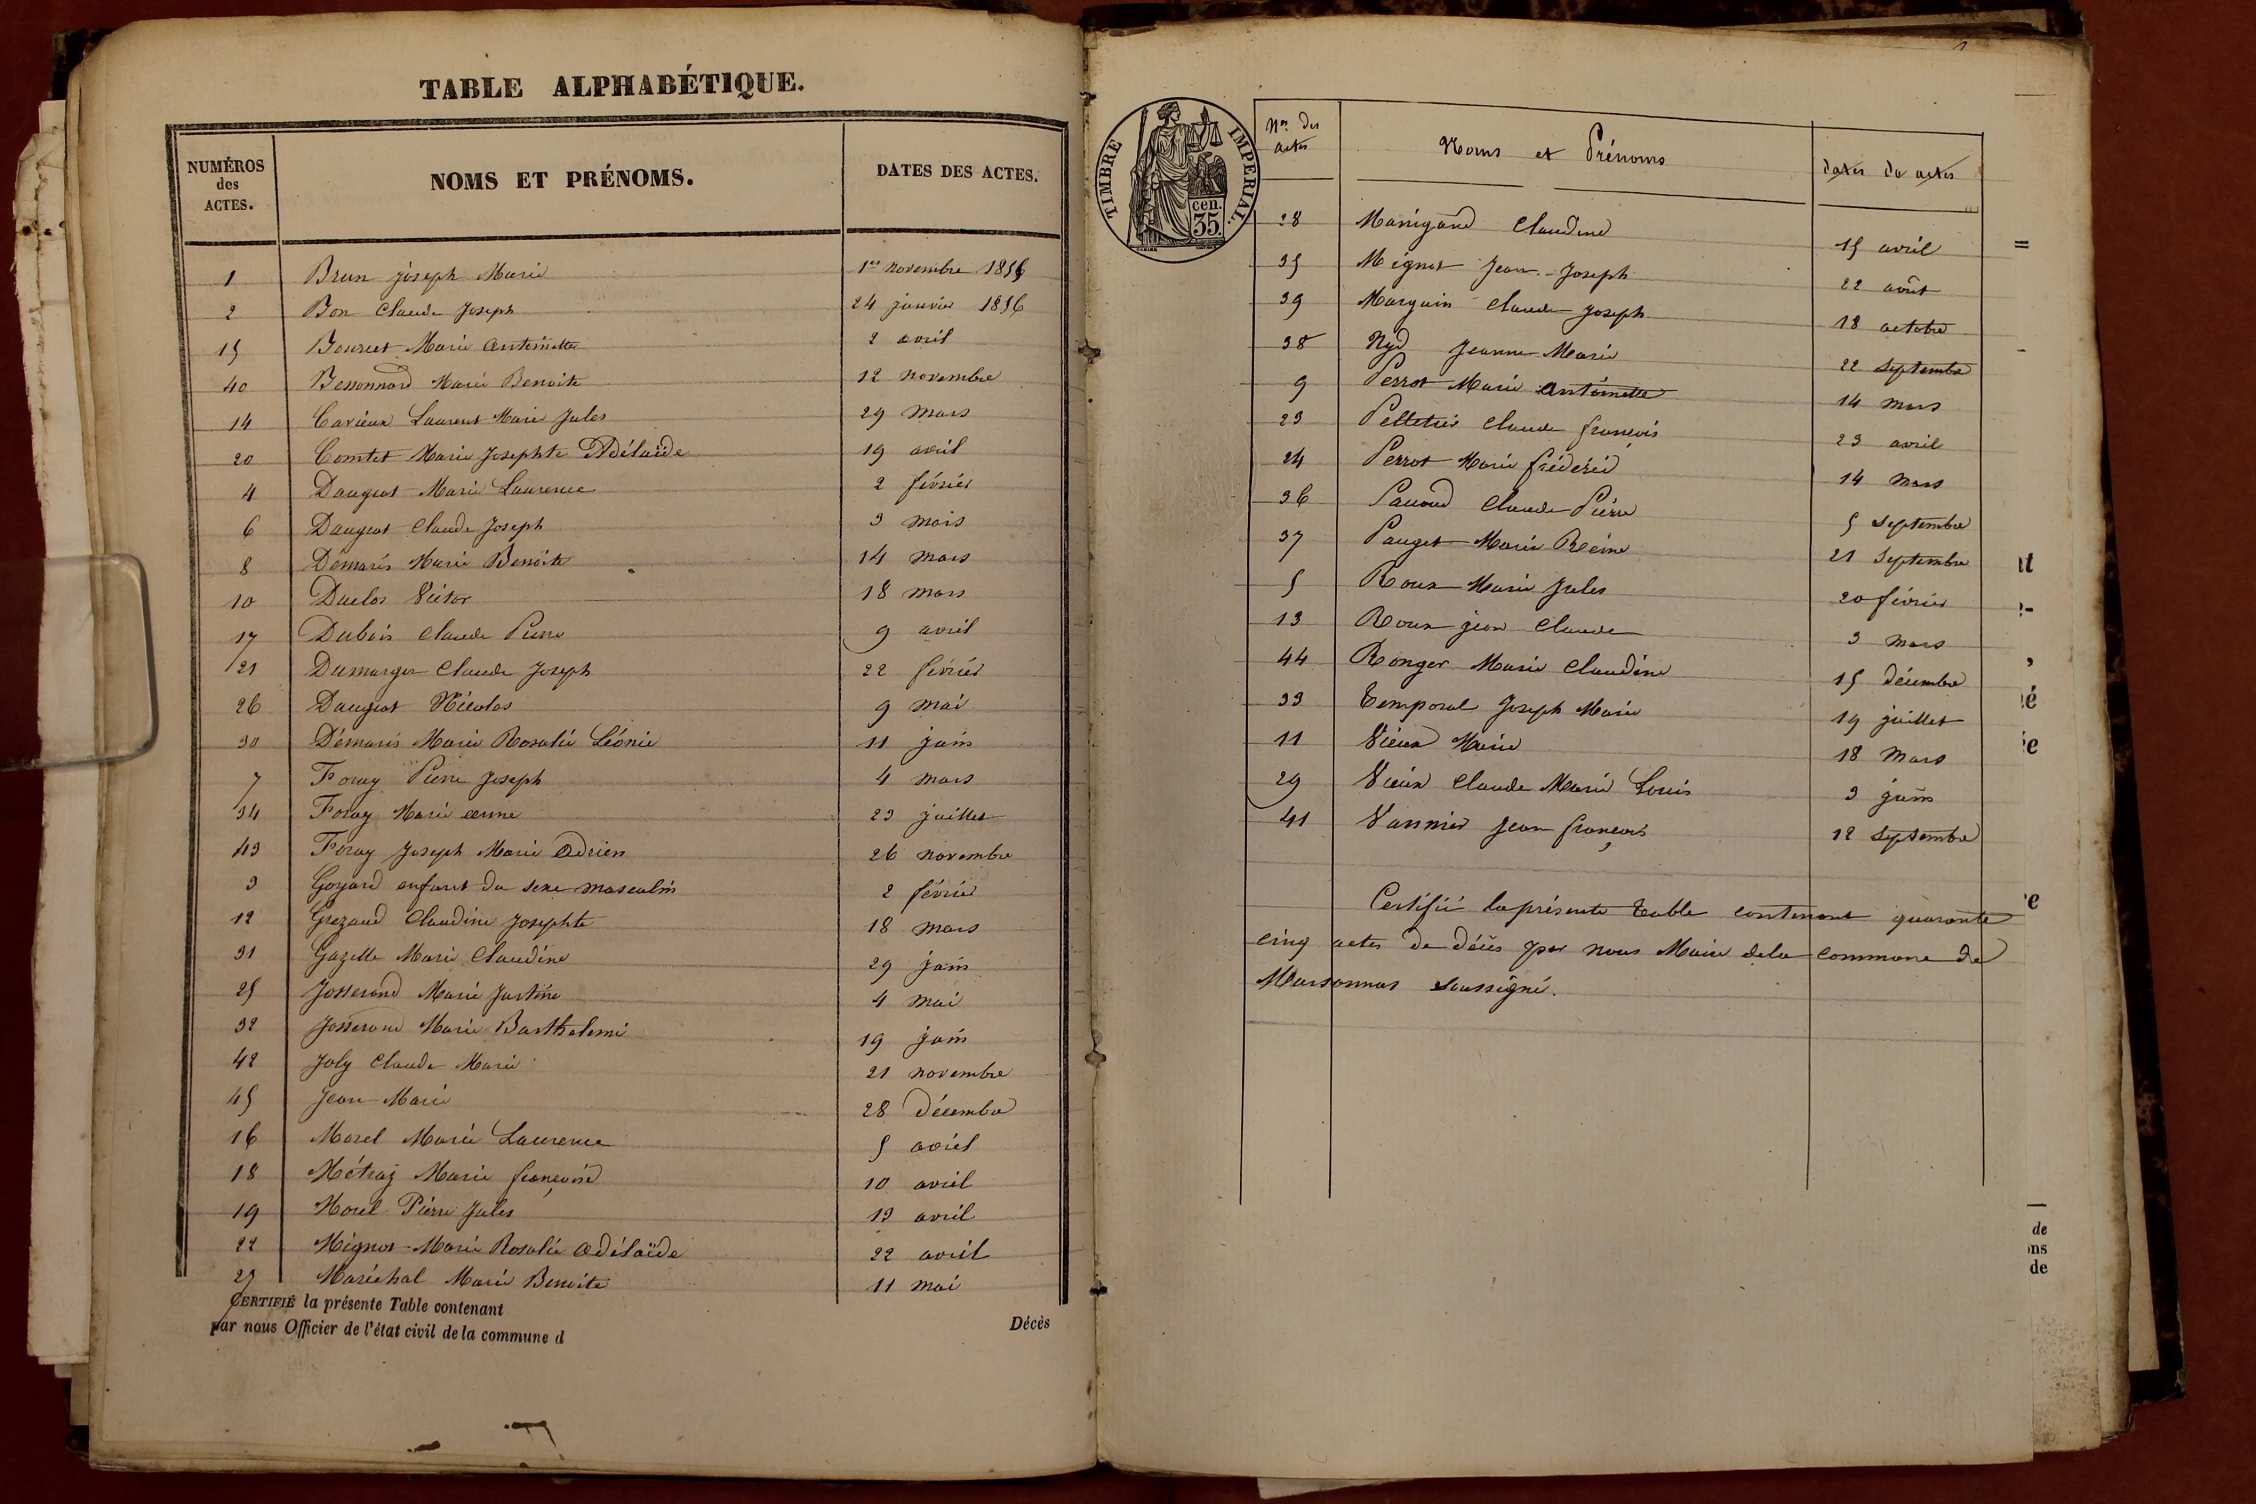 TABLE ALPHABÉTIQUE.
NUMÉROS des ACTES. NOMS ET PRÉNOMS. DATES DES ACTES.
1 Brun joseph Marie 1er novembre 1856
2 Bon Claude Joseph 24 janvier 1856
15 Bourcet Marie antoinette 2 avril
40 Bessonnard Marie Benoite 12 novembre
14 Cavieux Laurent Marie Jules 29 mars
20 Comtet Marie Josephte Adélaïde 19 avril
4 Daugeat Marie Laurence 2 février
6 Daugeat Claude Joseph 3 mars
8 Démaris Marie Benoite 14 mars
10 Duclos Victor 18 mars
17 Dubois Claude Pierre 9 avril
21 Dumarger Claude Joseph 22 février
26 Daugeat Nicolas 9 mai
30 Démaris Marie Rosalie Léonie 11 juin
7 Foray Pierre Joseph 4 mars
34 Foray Marie anne 23 juillet
43 Foray Joseph Marie Adrien 26 novembre
3 Goyard enfant du sexe masculin 2 février
12 Grezaud Claudine Josephte 18 mars
31 Gazelle Marie Claudine 29 juin
25 Josserand Marie Justine 4 mai
32 Josserand Marie Barthelemi 19 juin
42 Joly Claude Marie 21 novembre
45 Jean-Marie 28 décembre
16 Morel Marie Laurence 5 avril
18 Métraz Marie françoise 10 avril
19 Morel Pierre Jules 13 avril
22 Mignot Marie Rosalie adélaïde 22 avril
27 Maréchal Marie Benoite 11 mai
CERTIFIÉ la présente Table contenant Décès
par nous Officier de l'état civil de la commune d
TIMBRE IMPÉRIAL.
cen.
35.
Nos des actes Noms et Prénoms dates des actes
28 Manigand Claudine 15 avril
35 Mignot Jean-Joseph 22 août
39 Marguin Claude Joseph 18 octobre
38 Nyd Jeanne Marie 22 septembre
9 Perrot Marie antoinette 14 mars
23 Pelletier Claude françois 23 avril
24 Perrot Marie fréderic 14 mars
36 Pauoud Claude Pierre 5 septembre
37 Pauget Marie Reine 21 Septembre
5 Roux Marie Jules 20 février
13 Roux jean Claude 3 mars
44 Ronger Marie Claudine 15 décembre
33 Temporal Joseph Marie 19 juillet
11 Vieux Marie 18 Mars
29 Vieux Claude Marie Louis 3 juin
41 Vannier Jean françois 12 septembre
Certifié la présente Table contenant quarante
cinq actes de décès par nous Maire de la commune de
Marsonnas soussigné.